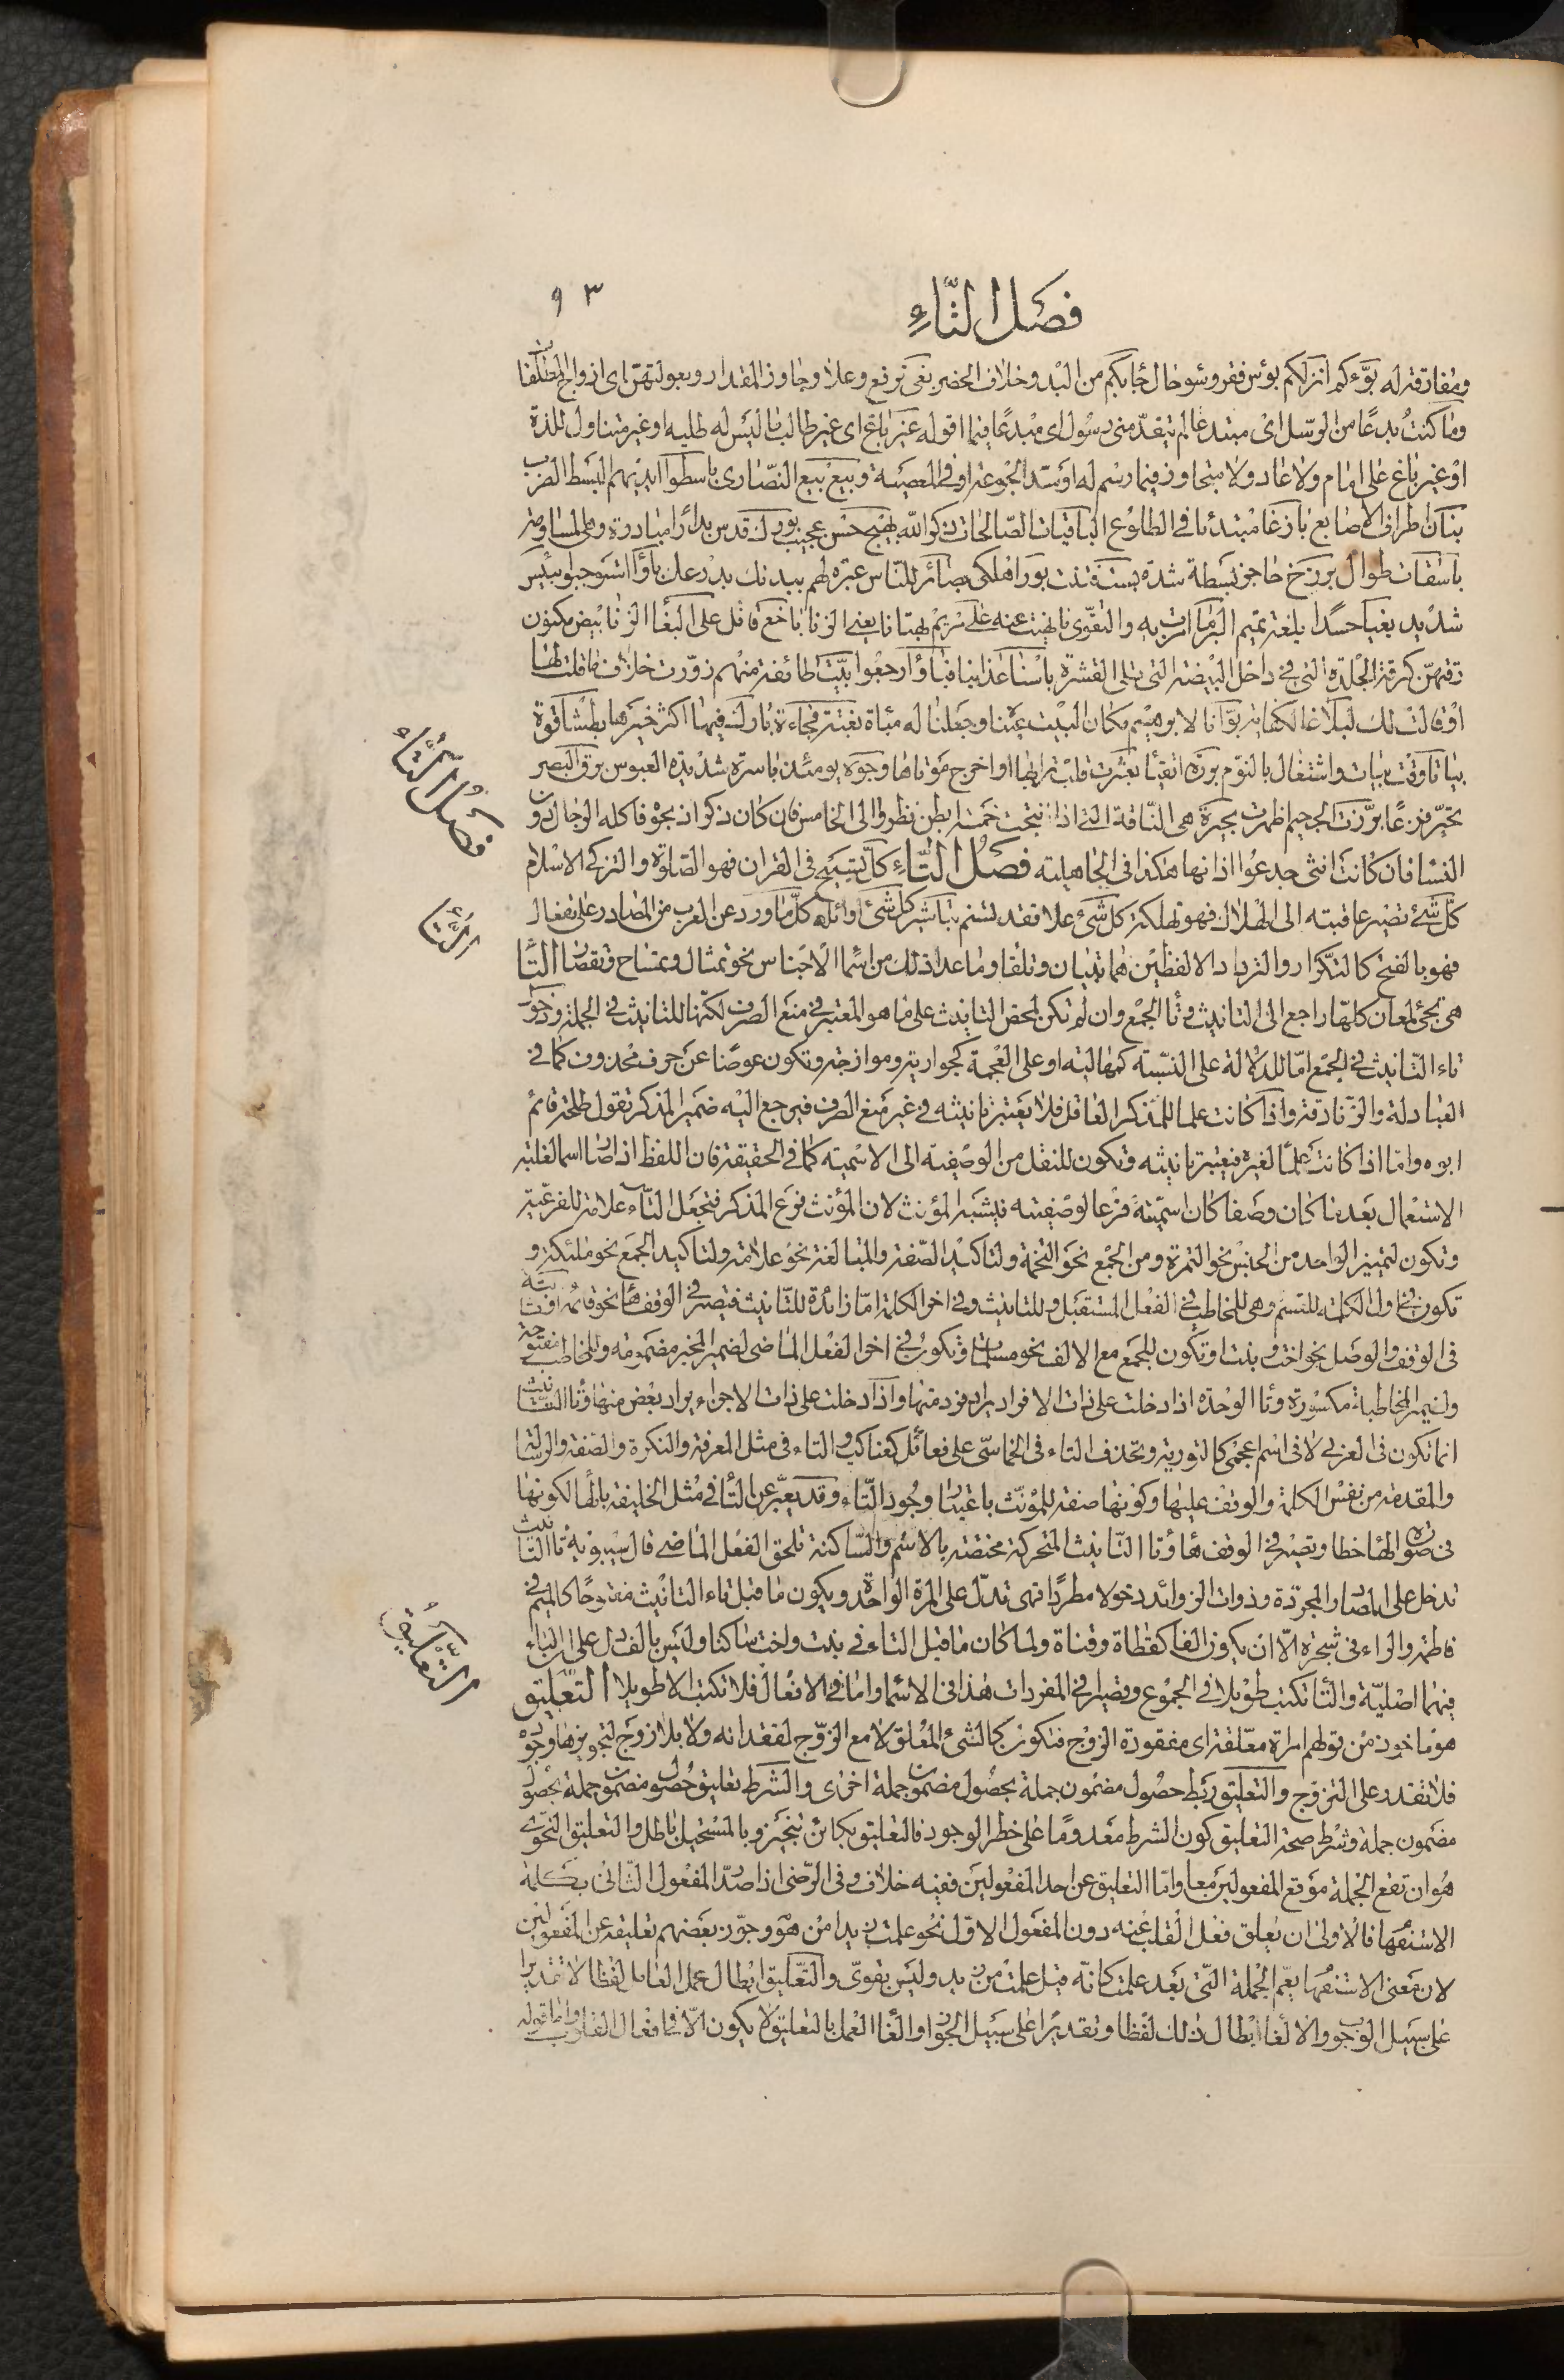 فصل التاء
٩٣
ومفارقته له بوّءكم انزلكم بؤس فقر وسوء حال بكم من البدو خلاف الحضر بغى ترفع وعلا وجاوز المقدار وبعولتهن اى ازواج المطلقات
وما كنت بدعًا من الرسل اى مبتدعا لم يتقدمنى رسول اى مبدعًا فيما اقوله غير باغ اى غير طالب ما ليس له طلبه او غير متناول للذة
او غير باغ على امام ولا عاد ولا متجاوز فيما رسم له او سد الجوعة او فى المعصية وبيع بيع النصارى باسطوا ايديهم البسط الضرب
بنان اطراف الاصابع بازغا مبتدئا فى الطلوع الباقيات الصالحات ذكر الله بهيج حسن عجيب بورك قدس بدارا مبادرة وهى المسارعة
باسقات طوال برزخ حاجز بسطة شدة بست فتت بورا هلكى بصائر للناس عبرة لهم ببدنك بدرعك باؤا استوجبوا بئيس
شديد بغيا حسدا بلغة تميم البر ما امرت به والتقوى ما نهيت عنه على مريم بهتانا يعنى الزنا باخع قاتل على البغاء الزنا بيض مكنون
رقتهن كرقة الجلدة التى فى داخل البيضة التى تلى القشرة باسنا عذابنا فباؤا رجعوا بيّت طائفة منهم زوّرت خلاف ما قلت لها
او قالت لك لبلاغا لكفاية بوّأنا لابرهيم مكان البيت عيّنا وجعلنا له مباءة بغتة فجاءة بارك فيها اكثر خيرها بطشا قوة
بياتا وقت بيات واشتغال بالنوم بررة اتقياء بعثرت قلب ترابها او اخرج موتاها وجوه يومئذ باسرة شديدة العبوس برق البصر
تحيّر فزعًا برّزت الجحيم اظهرت بحيرة هى الناقة التى اذا نتجت خمسة ابطن نظروا الى الخامس فان كان ذكرا ذبحوه فاكله الرجال دون
النساء فان كانت انثى جدعوا اذانها هكذا فى الجاهلية فصل التاء كل تسبيح فى القران فهو الصلوة والتزكى الاسلام
كل شئ تصير عاقبته الى الهلاك فهو تهلكة كل شئ علا فقد تسنم تباشير كل شئ اوائله كل ما ورد عن العرب من المصادر على تفعال
فهو بالفتح كالتكرار والترداد الا لفظين هما تبيان وتلقاء وما عدا ذلك من اسماء الاجناس نحو تمثال وتمساح وتقصار التاء
هى تجئ لمعان كلها راجع الى التانيث وتاء الجمع وان لم تكن لمحض التانيث على ما هو المعتبر فى منع الصرف لكنها للتانيث فى الجملة ودخول
تاء التانيث فى الجمع اما للدلالة على النسبة كمهالبة او على العجمة كجواربة وموازجة وتكون عوضًا عن حرف محذوف كما فى
العبادلة والزنادقة واذا كانت علما للمذكر العاقل فلا يعتبر تانيثه فى غير منع الصرف فيرجع اليه ضمير المذكر تقول طلحة قائم
ابوه واما اذا كانت علما لغيره فيعتبر تانيثه وتكون للنقل من الوصفية الى الاسمية كما فى الحقيقة فان اللفظ اذا صار اسما لغلبة
الاستعمال بعد ما كان وصفا كان اسميته فرعا لوصفيته فيشبه المؤنث لان المؤنث فرع المذكر فتجعل التاء علامة للفرعية
وتكون لتمييز الواحد من الجنس نحو التمرة ومن الجمع نحو التخمة ولتاكيد الصفة والمبالغة نحو علامة ولتاكيد الجمع نحو ملئكة و
تكون فى اول الكلمة للقسم وهى للمخاطب فى الفعل المستقبل وللتانيث وفى اخر الكلمة اما زائدة للتانيث فتصير فى الوقف هاء نحو قائمة او ثابتة
فى الوقف والوصل نحو اخت وبنت او تكون للجمع مع الالف نحو مسلمات وتكون فى اخر الفعل الماضى لضمير المخبر مضمومة وللمخاطب مفتوحة
ولضمير المخاطبة مكسورة وتاء الوحدة اذا دخلت على ذات الافراد يراد فرد منها واذا دخلت على ذات الاجزاء يراد بعض منها وتاء التانيث
انما تكون فى العربى لا فى اسم اعجمى كالتورية وتحذف التاء فى الخماسى على فعائل كعناكب والتاء فى مثل المعرفة والنكرة والصفة والرسالة
والمقدمة من نفس الكلمة والوقف عليها وكونها صفة للمؤنث باعتبار وجود التاء وقد يعبّر عن التاء فى مثل الخليفة بالهاء لكونها
فى صورة الهاء خطا وتصير فى الوقف هاء وتاء التانيث المتحركة مختصة بالاسم والساكنة تلحق الفعل الماضى قال سيبويه تاء التانيث
تدخل على المصادر المجردة وذوات الزوائد دخولا مطردًا فهى تدل على المرة الواحدة ويكون ما قبل تاء التانيث مفتوحًا كالميم فى
فاطمة والراء فى شجرة الا ان يكون الفا كقطاة وقناة ولما كان ما قبل التاء فى بنت واخت ساكنا وليس بالف دل على ان التاء
فيهما اصلية والتاء تكتب طويلا فى الجموع وقصيرا فى المفردات هذا فى الاسماء واما فى الافعال فلا تكتب الا طويلا التعليق
هو ماخوذ من قولهم امراة معلقة اى مفقودة الزوج فتكون كالشئ المعلق لا مع الزوج لفقدانه ولا بلا زوج لتجويزها وجوده
فلا تقدر على التزوج والتعليق ربط حصول مضمون جملة بحصول مضمون جملة اخرى والشرط تعليق حصول مضمون جملة بحصول
مضمون جملة وشرط صحة التعليق كون الشرط معدومًا على خطر الوجود فالتعليق بكائن تنجيز وبالمستحيل باطل والتعليق النحوى
هو ان تقع الجملة موقع المفعولين معا واما التعليق عن احد المفعولين ففيه خلاف وفى الرضى اذا صدر المفعول الثانى بكلمة
الاستفهام فالاولى ان يعلق فعل القلب عنه دون المفعول الاول نحو علمت زيدا من هو وجوّز بعضهم تعليقه عن المفعولين
لان معنى الاستفهام يعم الجملة التى بعد علمت كانه قيل علمت من زيد وليس بقوى والتعليق ابطال عمل العامل لفظا لا تقديرا
على سبيل الوجوب والالغاء ابطال ذلك لفظا وتقديرًا على سبيل الجواز والغاء العمل بالتعليق لا يكون الا فى افعال القلوب واما قوله
فصل التاء
التاء
التعليق